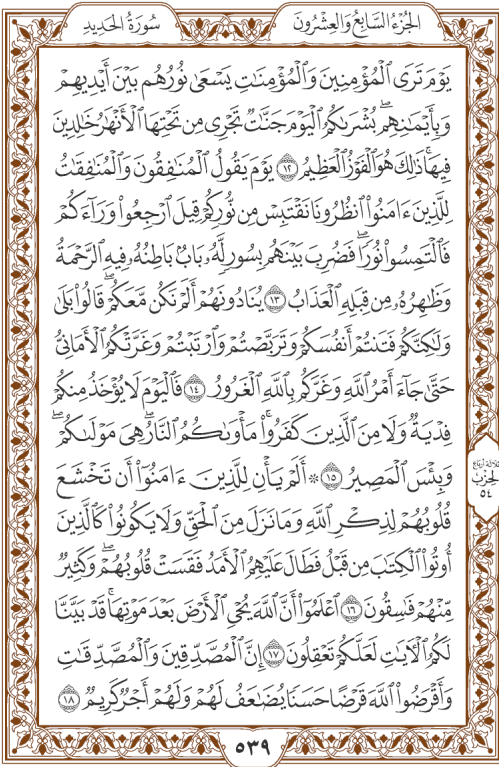 الجُزْءُ السَّابِعُ وَالعِشْرُونَ
سُورَةُ الحَدِيدِ
يَوْمَ تَرَى ٱلْمُؤْمِنِينَ وَٱلْمُؤْمِنَٰتِ يَسْعَىٰ نُورُهُم بَيْنَ أَيْدِيهِمْ
وَبِأَيْمَٰنِهِمۖ بُشْرَىٰكُمُ ٱلْيَوْمَ جَنَّٰتٌ تَجْرِي مِن تَحْتِهَا ٱلْأَنْهَٰرُ خَٰلِدِينَ
فِيهَاۚ ذَٰلِكَ هُوَ ٱلْفَوْزُ ٱلْعَظِيمُ ١٢ يَوْمَ يَقُولُ ٱلْمُنَٰفِقُونَ وَٱلْمُنَٰفِقَٰتُ
لِلَّذِينَ ءَامَنُوا۟ ٱنظُرُونَا نَقْتَبِسْ مِن نُّورِكُمْ قِيلَ ٱرْجِعُوا۟ وَرَآءَكُمْ
فَٱلْتَمِسُوا۟ نُورًاۖ فَضُرِبَ بَيْنَهُم بِسُورٍ لَّهُۥ بَابٌۢ بَاطِنُهُۥ فِيهِ ٱلرَّحْمَةُ
وَظَٰهِرُهُۥ مِن قِبَلِهِ ٱلْعَذَابُ ١٣ يُنَادُونَهُمْ أَلَمْ نَكُن مَّعَكُمْۖ قَالُوا۟ بَلَىٰ
وَلَٰكِنَّكُمْ فَتَنتُمْ أَنفُسَكُمْ وَتَرَبَّصْتُمْ وَٱرْتَبْتُمْ وَغَرَّتْكُمُ ٱلْأَمَانِيُّ
حَتَّىٰ جَآءَ أَمْرُ ٱللَّهِ وَغَرَّكُم بِٱللَّهِ ٱلْغَرُورُ ١٤ فَٱلْيَوْمَ لَا يُؤْخَذُ مِنكُمْ
فِدْيَةٌ وَلَا مِنَ ٱلَّذِينَ كَفَرُوا۟ۚ مَأْوَىٰكُمُ ٱلنَّارُۖ هِيَ مَوْلَىٰكُمْۖ
وَبِئْسَ ٱلْمَصِيرُ ١٥ ۞ أَلَمْ يَأْنِ لِلَّذِينَ ءَامَنُوٓا۟ أَن تَخْشَعَ
قُلُوبُهُمْ لِذِكْرِ ٱللَّهِ وَمَا نَزَلَ مِنَ ٱلْحَقِّ وَلَا يَكُونُوا۟ كَٱلَّذِينَ
أُوتُوا۟ ٱلْكِتَٰبَ مِن قَبْلُ فَطَالَ عَلَيْهِمُ ٱلْأَمَدُ فَقَسَتْ قُلُوبُهُمْۖ وَكَثِيرٌ
مِّنْهُمْ فَٰسِقُونَ ١٦ ٱعْلَمُوٓا۟ أَنَّ ٱللَّهَ يُحْيِ ٱلْأَرْضَ بَعْدَ مَوْتِهَاۚ قَدْ بَيَّنَّا
لَكُمُ ٱلْءَايَٰتِ لَعَلَّكُمْ تَعْقِلُونَ ١٧ إِنَّ ٱلْمُصَّدِّقِينَ وَٱلْمُصَّدِّقَٰتِ
وَأَقْرَضُوا۟ ٱللَّهَ قَرْضًا حَسَنًا يُضَٰعَفُ لَهُمْ وَلَهُمْ أَجْرٌ كَرِيمٌ ١٨
ثلاثة أرباع
الحزب
٥٤
٥٣٩